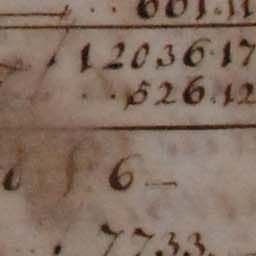 601.11
12036.17
526.12
6—
7733.